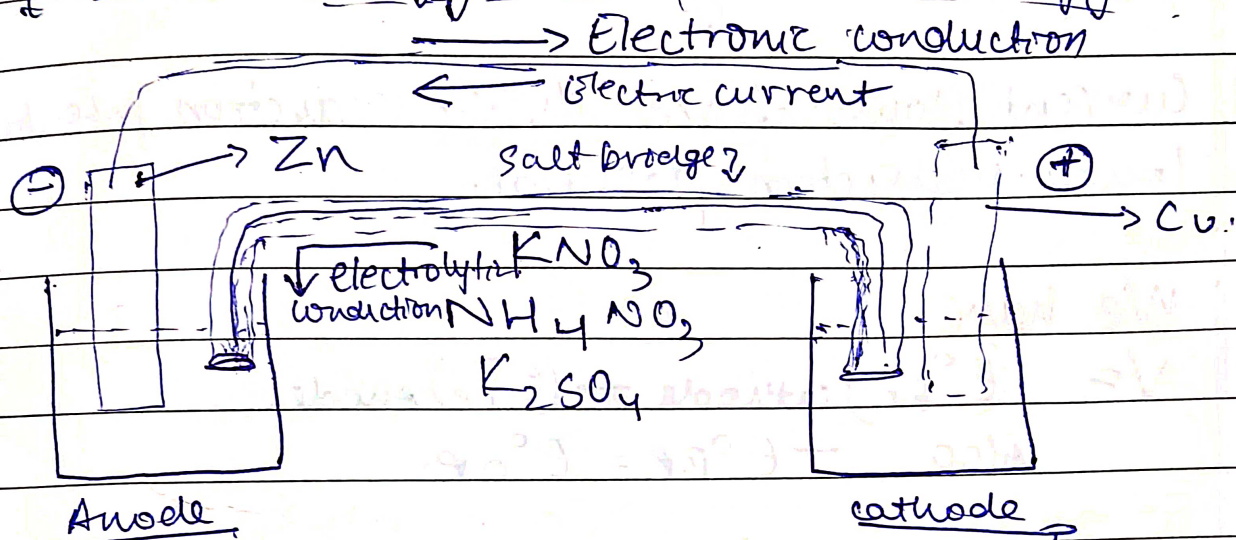 Electronic conduction
Electric current
Zn
Salt bridge
-
+
Cu.
electrolytic KNO3
conduction NH4NO3
K2SO4
Anode
cathode